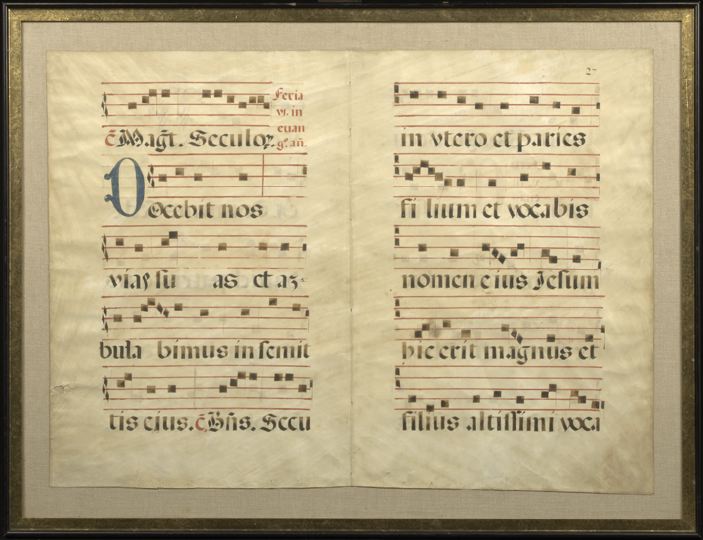 c̄ Mag̃t. Seculoꝝ.
Feria
vj. in
euan
g. añ.
Docebit nos
vias su as et am
bula bimus in semit
tis ejus. c̄ Bñs. Secu
27
in vtero et paries
fi lium et vocabis
nomen eius Jesum
hic erit magnus et
filius altissimi voca